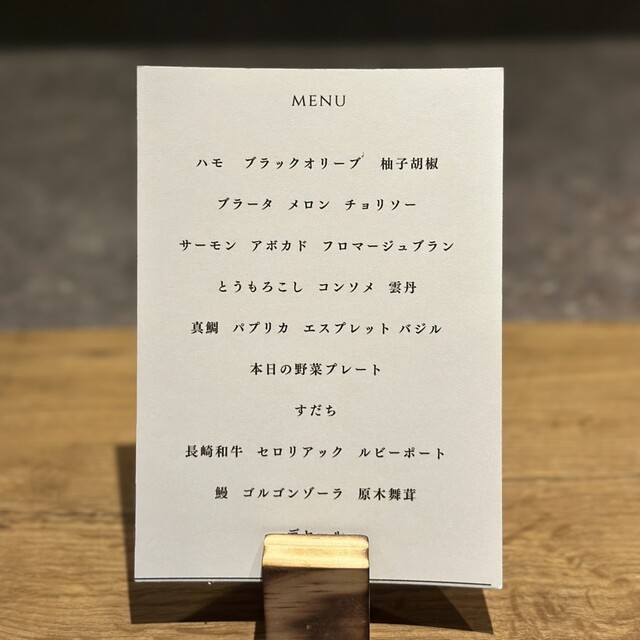 MENU
ハモ ブラックオリーブ 柚子胡椒
ブラータ メロン チョリソー
サーモン アボカド フロマージュブラン
とうもろこし コンソメ 雲丹
真鯛 パプリカ エスプレット バジル
本日の野菜プレート
すだち
長崎和牛 セロリアック ルビーポート
鰻 ゴルゴンゾーラ 原木舞茸